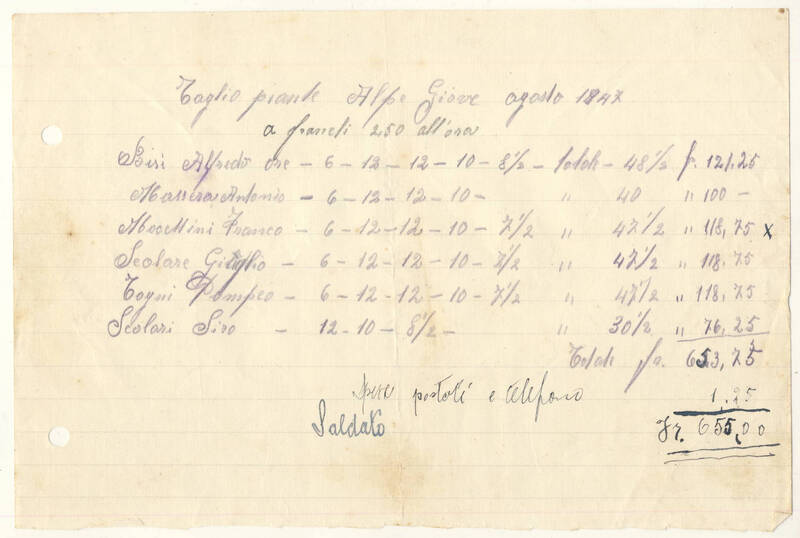 Taglio piante Alpe Giove agosto 1947
a franchi 2.50 all'ora
Biri Alfredo ore - 6 - 12 - 12 - 10 - 8½ - totale - 48½ fr. 121.25
Massera Antonio - 6 - 12 - 12 - 10 - " 40 " 100 -
Franco - 6 - 12 - 12 - 10 - 7½ " 47½ " 118,75 x
Scolare - 6 - 12 - 12 - 10 - 7½ " 47½ " 118.75
Togni Pompeo - 6 - 12 - 12 - 10 - 7½ " 47½ " 118,75
Scolari Siro - 12 - 10 - 8½ - " 30½ " 76,25
Totale fr. 653,75
Spese postali e telefono 1,25
Saldato Fr. 655,00